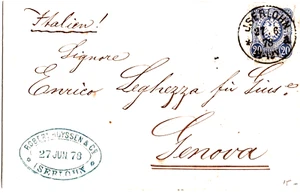 Italien!
ISERLOHN
27 6
78
20 20
Signore
Enrico Leghezza fu Gius.e
ROBERT HUYSSEN & CO
27 JUN 78
ISERLOHN
Genova
15.-